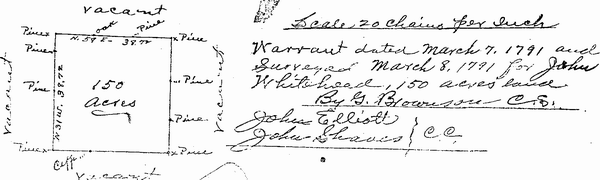 vacant
oak Pine
Pine x N. 59 E. 38.72 x Pine
Pine
x Pine
Pine
vacant
N 31 W. 38.72
150
acres
vacant
x Pine
Pine x x Pine
vacant
Scale 20 chains per Inch
Warrant dated March 7, 1791 and
Surveyed March 8, 1791 for John
Whitehead, 150 acres land
By G. Brownson C.S.
John Elliott
John Shaves } C.C.